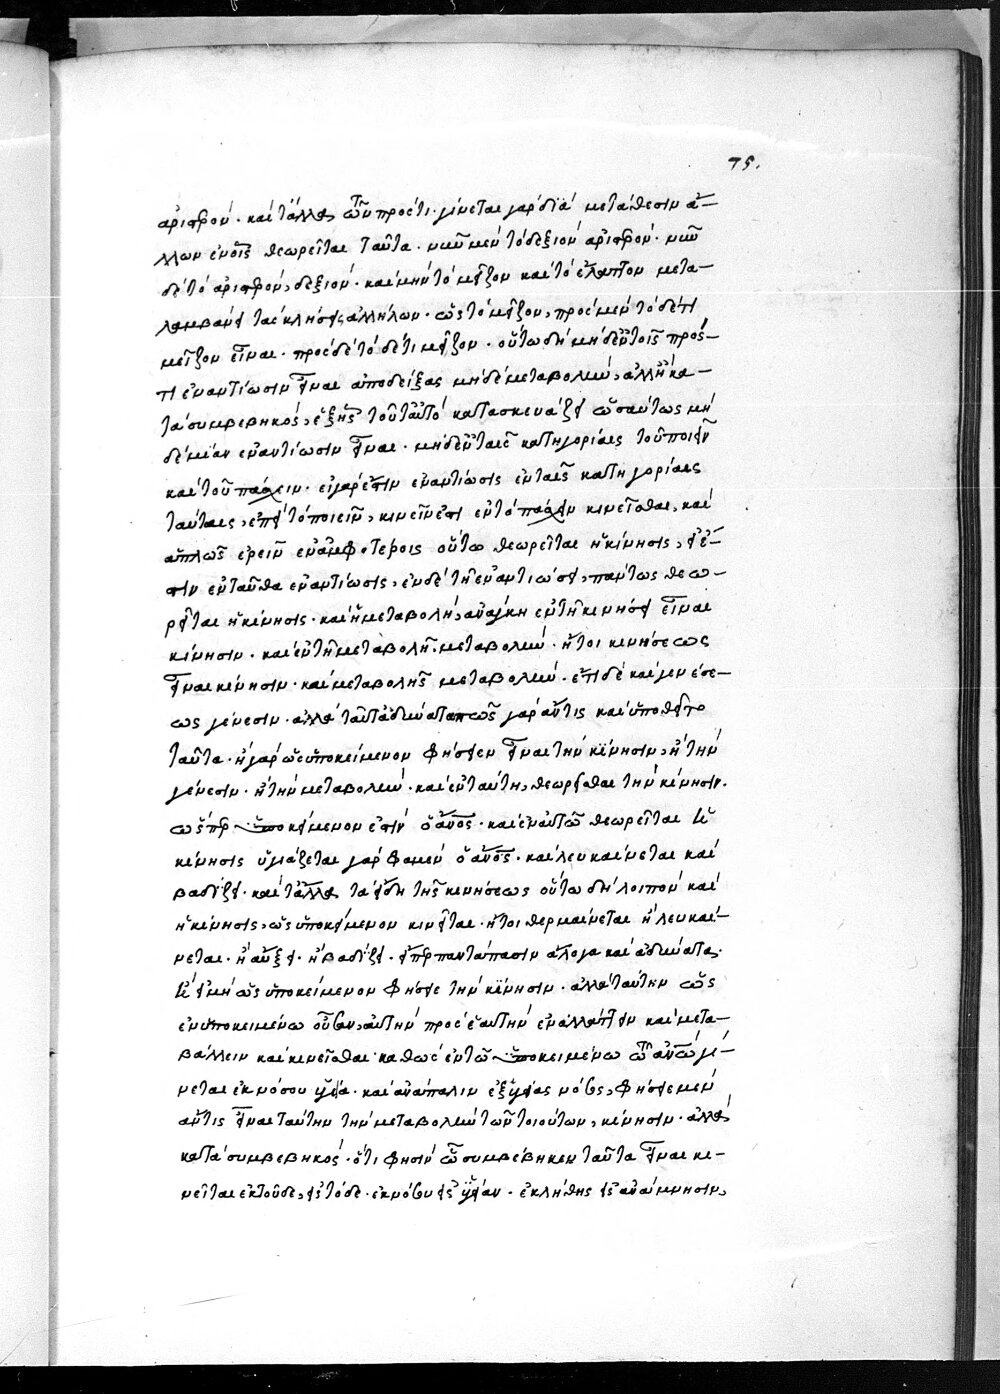 75.
ἀριστερόν· καὶ τἄλλα τῶν πρός τι· γίνεται γὰρ διὰ μετάθεσιν ἄ–
λλων ἐν οἷς θεωρεῖται ταῦτα· νῦν μὲν τὸ δεξιὸν ἀριστερόν· νῦν
δὲ τὸ ἀριστερὸν, δεξιόν· καὶ μὴν τὸ μεῖζον καὶ τὸ ἔλαττον μετα–
λαμβάνει τὰς κλήσεις ἀλλήλων· ὡς τὸ μεῖζον, πρὸς μὲν τὸ δέ τι
μεῖζον εἶναι· πρὸς δὲ τὸ δέ τι μεῖζον· οὕτω δὴ μηδ' ἐν τοῖς πρός–
τι ἐναντίωσιν εἶναι ἀποδείξας μηδὲ μεταβολὴν, ἀλλ' ἢ κα–
τὰ συμβεβηκός, ἑξῆς τοῦτ' αὐτὸ κατασκευάζει ὡσαύτως μη
δεμίαν ἐναντίωσιν εἶναι· μηδ' ἐν ταῖς κατηγορίαις τοῦ ποιεῖν
καὶ τοῦ πάσχειν· εἰ γάρ ἐστιν ἐναντίωσις ἐν ταῖς κατηγορίαις
ταύταις, ἐπεὶ τὸ ποιεῖν, κινεῖν ἐστι ἐν τὸ πάσχειν κινεῖσθαι, καὶ
ἁπλῶς ἐρεῖν ἐν ἀμφοτέροις οὕτω θεωρεῖται ἡ κίνησις, εἰ ἔ–
στιν ἐνταῦθα ἐναντίωσις, ἐν δὲ τῇ ἐναντιώσει, πάντως θεω–
ρεῖται ἡ κίνησις· καὶ ἡ μεταβολή, ἀνάγκη ἐν τῇ κινήσει εἶναι
κίνησιν· καὶ ἐν τῇ μεταβολῇ· μεταβολὴν· ἤτοι κινήσεως
εἶναι κίνησιν· καὶ μεταβολῆς μεταβολὴν· ἔτι δὲ καὶ γενέσε–
ως γένεσιν· ἀλλὰ ταῦτ' ἀδύνατα πῶς γὰρ ἄν τις καὶ ὑπόθοιτο
ταῦτα· ἢ γὰρ ὡς ὑποκείμενον φήσειεν εἶναι τὴν κίνησιν, ἢ τὴν
γένεσιν· ἢ τὴν μεταβολὴν· καὶ ἐν ταύτῃ, θεωρεῖσθαι τὴν κίνησιν·
ὥσπερ ὑποκείμενον ἐστὶν ὁ ἄνος· καὶ ἐν αὐτῷ θεωρεῖται ἡ
κίνησις ὑγιάζεται γὰρ φαμὲν ὁ ἄνος· καὶ λευκαίνεται καὶ
βαδίζει· καὶ τἄλλα τὰ εἴδη τῆς κινήσεως οὕτω δὴ λοιπὸν καὶ
ἡ κίνησις, ὡς ὑποκείμενον κινεῖται· ἤτοι θερμαίνεται ἢ λευκαί–
νεται· ἢ αὔξει· ἢ βαδίζει· ἅπερ παντάπασιν ἄλογα καὶ ἀδύνατα·
ἢ εἰ μὴ ὡς ὑποκείμενον φήσει τὴν κίνησιν· ἀλλὰ ταύτην ὡς
ἐν ὑποκειμένω οὖσαν, αὐτὴν πρὸς ἑαυτὴν ἐναλλάττειν καὶ μετα–
βάλλειν καὶ κινεῖσθαι· καθὼς ἐν τῷ ὑποκειμένω τῶ ἀνω γί–
νεται ἐκ νόσου ὑγεία· καὶ ἀνάπαλιν ἐξ ὑγείας νόσος, φήσει μὲν
ἄν τις εἶναι ταύτην τὴν μεταβολὴν τῶν τοιούτων, κίνησιν· ἀλλὰ
κατὰ συμβεβηκός· ὅτι φησὶν ᾧ συμβέβηκεν ταῦτα εἶναι κι–
νεῖται ἐκ τοῦδε, εἰς τόδε· ἐκ νόσου εἰς ὑγείαν· ἐκ λήθης εἰς ἀνάμνησιν,